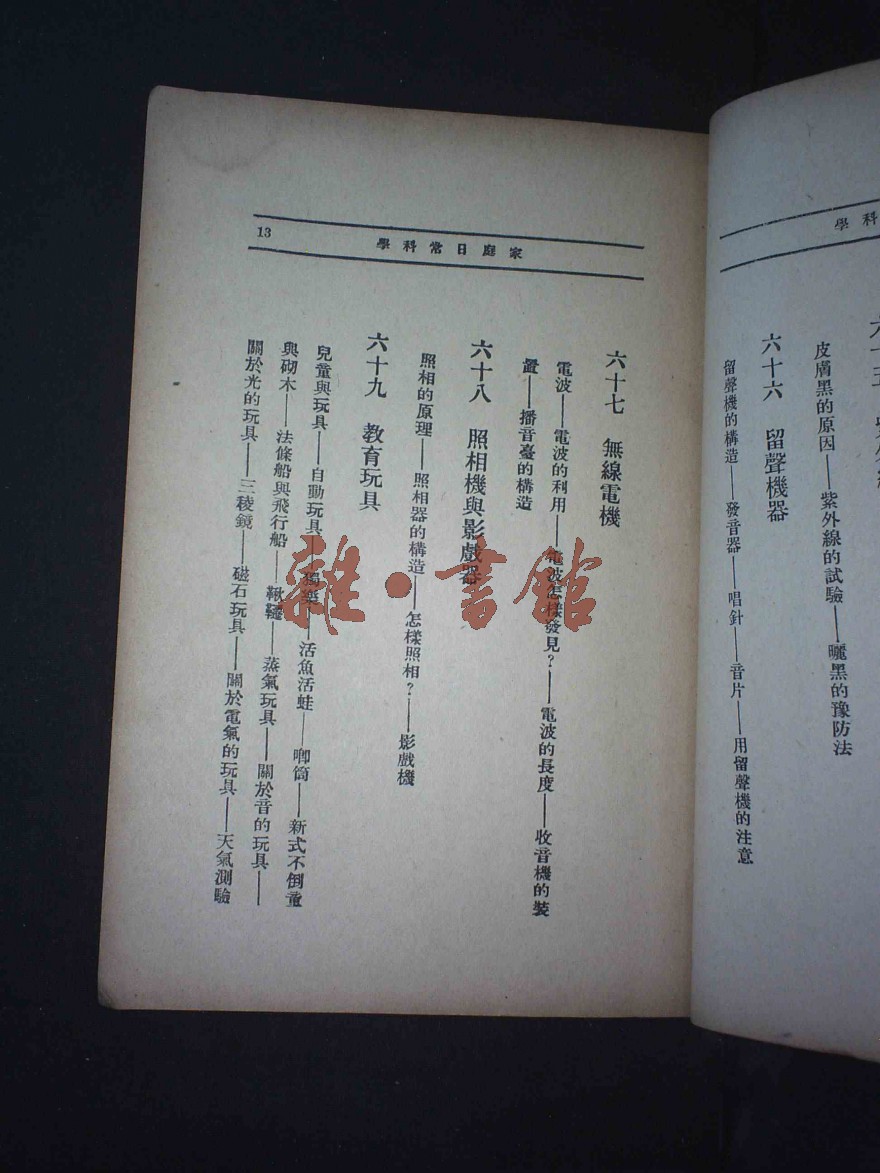 學科
皮膚黑的原因——紫外線的試驗——曬黑的豫防法
六十六 留聲機器
留聲機的構造——發音器——唱針——音片——用留聲機的注意
家庭日常科學
13
六十七 無線電機
電波——電波的利用——電波怎樣發見?——電波的長度——收音機的裝
置——播音臺的構造
六十八 照相機與影戲器
照相的原理——照相器的構造——怎樣照相?——影戲機
六十九 教育玩具
兒童與玩具——自動玩具——獨樂——活魚活蛙——唧筒——新式不倒童
與砌木——法條船與飛行船——鞦韆——蒸氣玩具——關於音的玩具——
關於光的玩具——三稜鏡——磁石玩具——關於電氣的玩具——天氣測驗
雜·書館